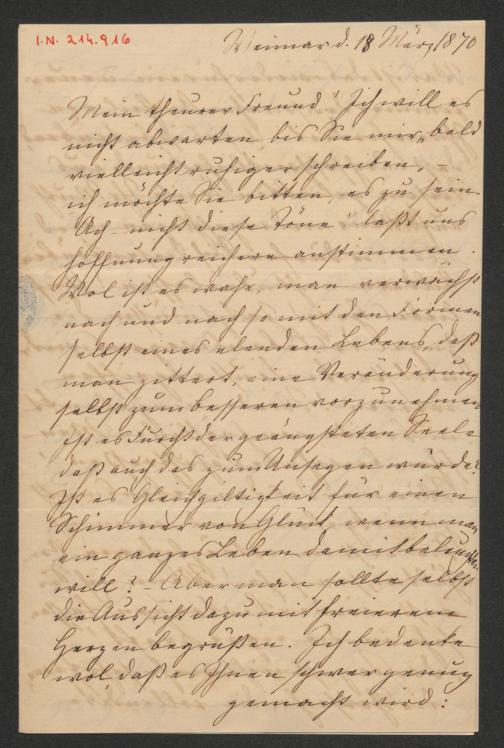 I.N. 214.916
Weimar d. 18 März 1870
Mein theurer Freund! Ich will es
nicht abwarten, bis Sie mir „bald
vielleicht ruhiger schreiben, –
ich möchte Sie bitten, es zu sein.
Ach – nicht diese Töne! laßt uns
hoffnungreichere anstimmen.
Wol ist es wahr, man verwächst
nach und nach so mit den Formen
selbst eines elenden Lebens, daß
man zittert, eine Veränderung
selbst zum besseren vorzunehmen
Ist es Furcht der geängsteten Seele
daß auch das zum Unsegen würde?
Ist es Gleichgiltigkeit für einen
Schimmer von Glück, wenn man
ein ganzes Leben damit beleuchten
will? – Aber man sollte selbst
die Aussicht dazu mit freierem
Herzen begrüßen. Ich bedenke
wol, daß es Ihnen schwer genug
gemacht wird: